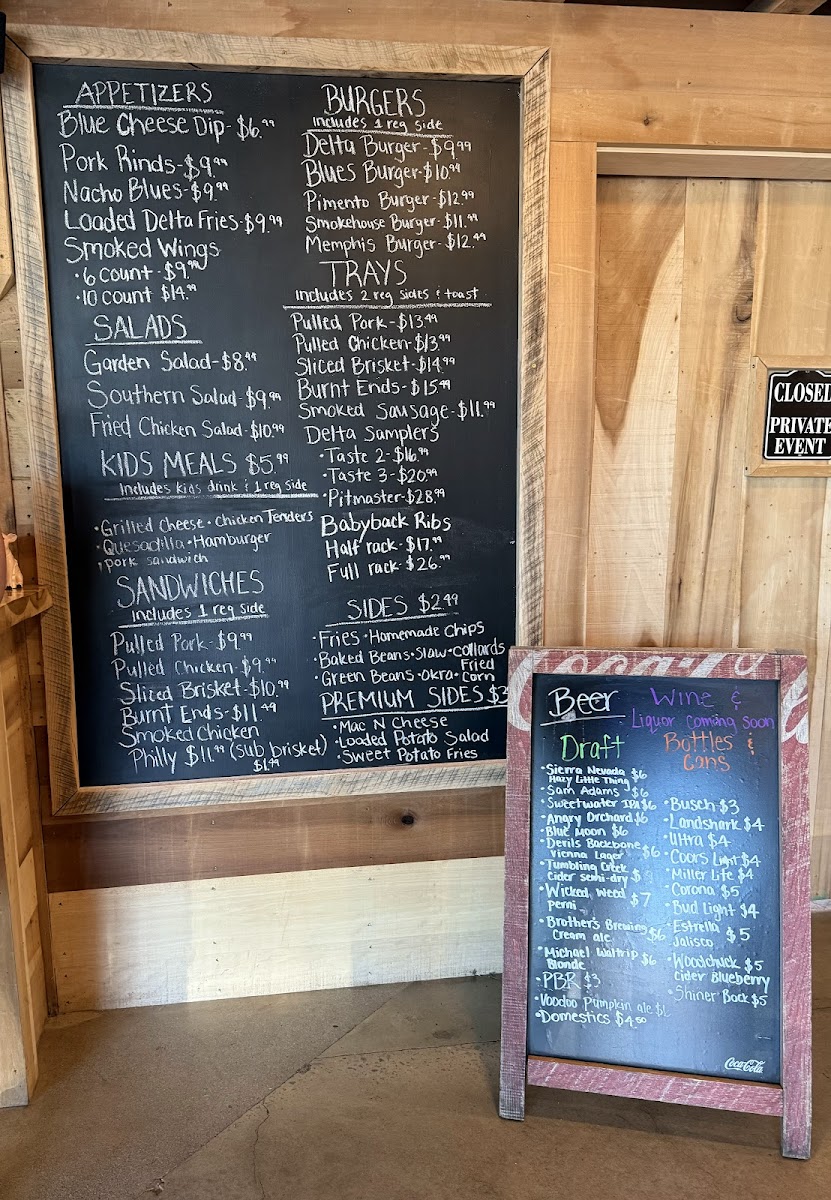 APPETIZERS
Blue Cheese Dip-$6.99
Pork Rinds-$9.99
Nacho Blues-$9.99
Loaded Delta Fries-$9.99
Smoked Wings
•6 count-$9.99
•10 count $14.99
SALADS
Garden Salad-$8.99
Southern Salad-$9.99
Fried Chicken Salad-$10.99
KIDS MEALS $5.99
Includes kids drink & 1 reg side
•Grilled Cheese•Chicken Tenders
•Quesadilla•Hamburger
•pork sandwich
SANDWICHES
includes 1 reg side
Pulled Pork-$9.99
Pulled Chicken-$9.99
Sliced Brisket-$10.99
Burnt Ends-$11.49
Smoked Chicken
Philly $11.99 (sub brisket)
$1.99
BURGERS
includes 1 reg side
Delta Burger-$9.99
Blues Burger-$10.99
Pimento Burger-$12.99
Smokehouse Burger-$11.99
Memphis Burger-$12.99
TRAYS
includes 2 reg sides & toast
Pulled Pork-$13.49
Pulled Chicken-$13.99
Sliced Brisket-$14.99
Burnt Ends-$15.49
Smoked Sausage-$11.99
Delta Samplers
•Taste 2-$16.99
•Taste 3-$20.99
•Pitmaster-$28.99
Babyback Ribs
Half rack-$17.99
Full rack-$26.99
SIDES $2.49
•Fries•Homemade Chips
•Baked Beans•Slaw•Collards
•Green Beans•Okra•Fried Corn
PREMIUM SIDES $3
•Mac N Cheese
•Loaded Potato Salad
•Sweet Potato Fries
CLOSED
PRIVATE
EVENT
Coca-Cola
Beer
Wine &
Liquor coming soon
Draft
•Sierra Nevada
Hazy Little Thing $6
•Sam Adams $6
•Sweetwater IPA $6
Angry Orchard $6
•Blue Moon $6
•Devils Backbone
Vienna Lager $6
•Tumbling Creek
cider semi-dry $
•Wicked Weed
perni $7
•Brother's Brewing
Cream ale $6
•Michael Waltrip $6
Blonde
•PBR $3
•Voodoo Pumpkin ale
•Domestics $4.50
Bottles &
Cans
•Busch $3
•Landshark $4
•Ultra $4
•Coors Light $4
•Miller Lite $4
•Corona $5
•Bud Light $4
•Estrella
Jalisco $5
•Woodchuck $5
cider Blueberry
•Shiner Bock $5
Coca-Cola